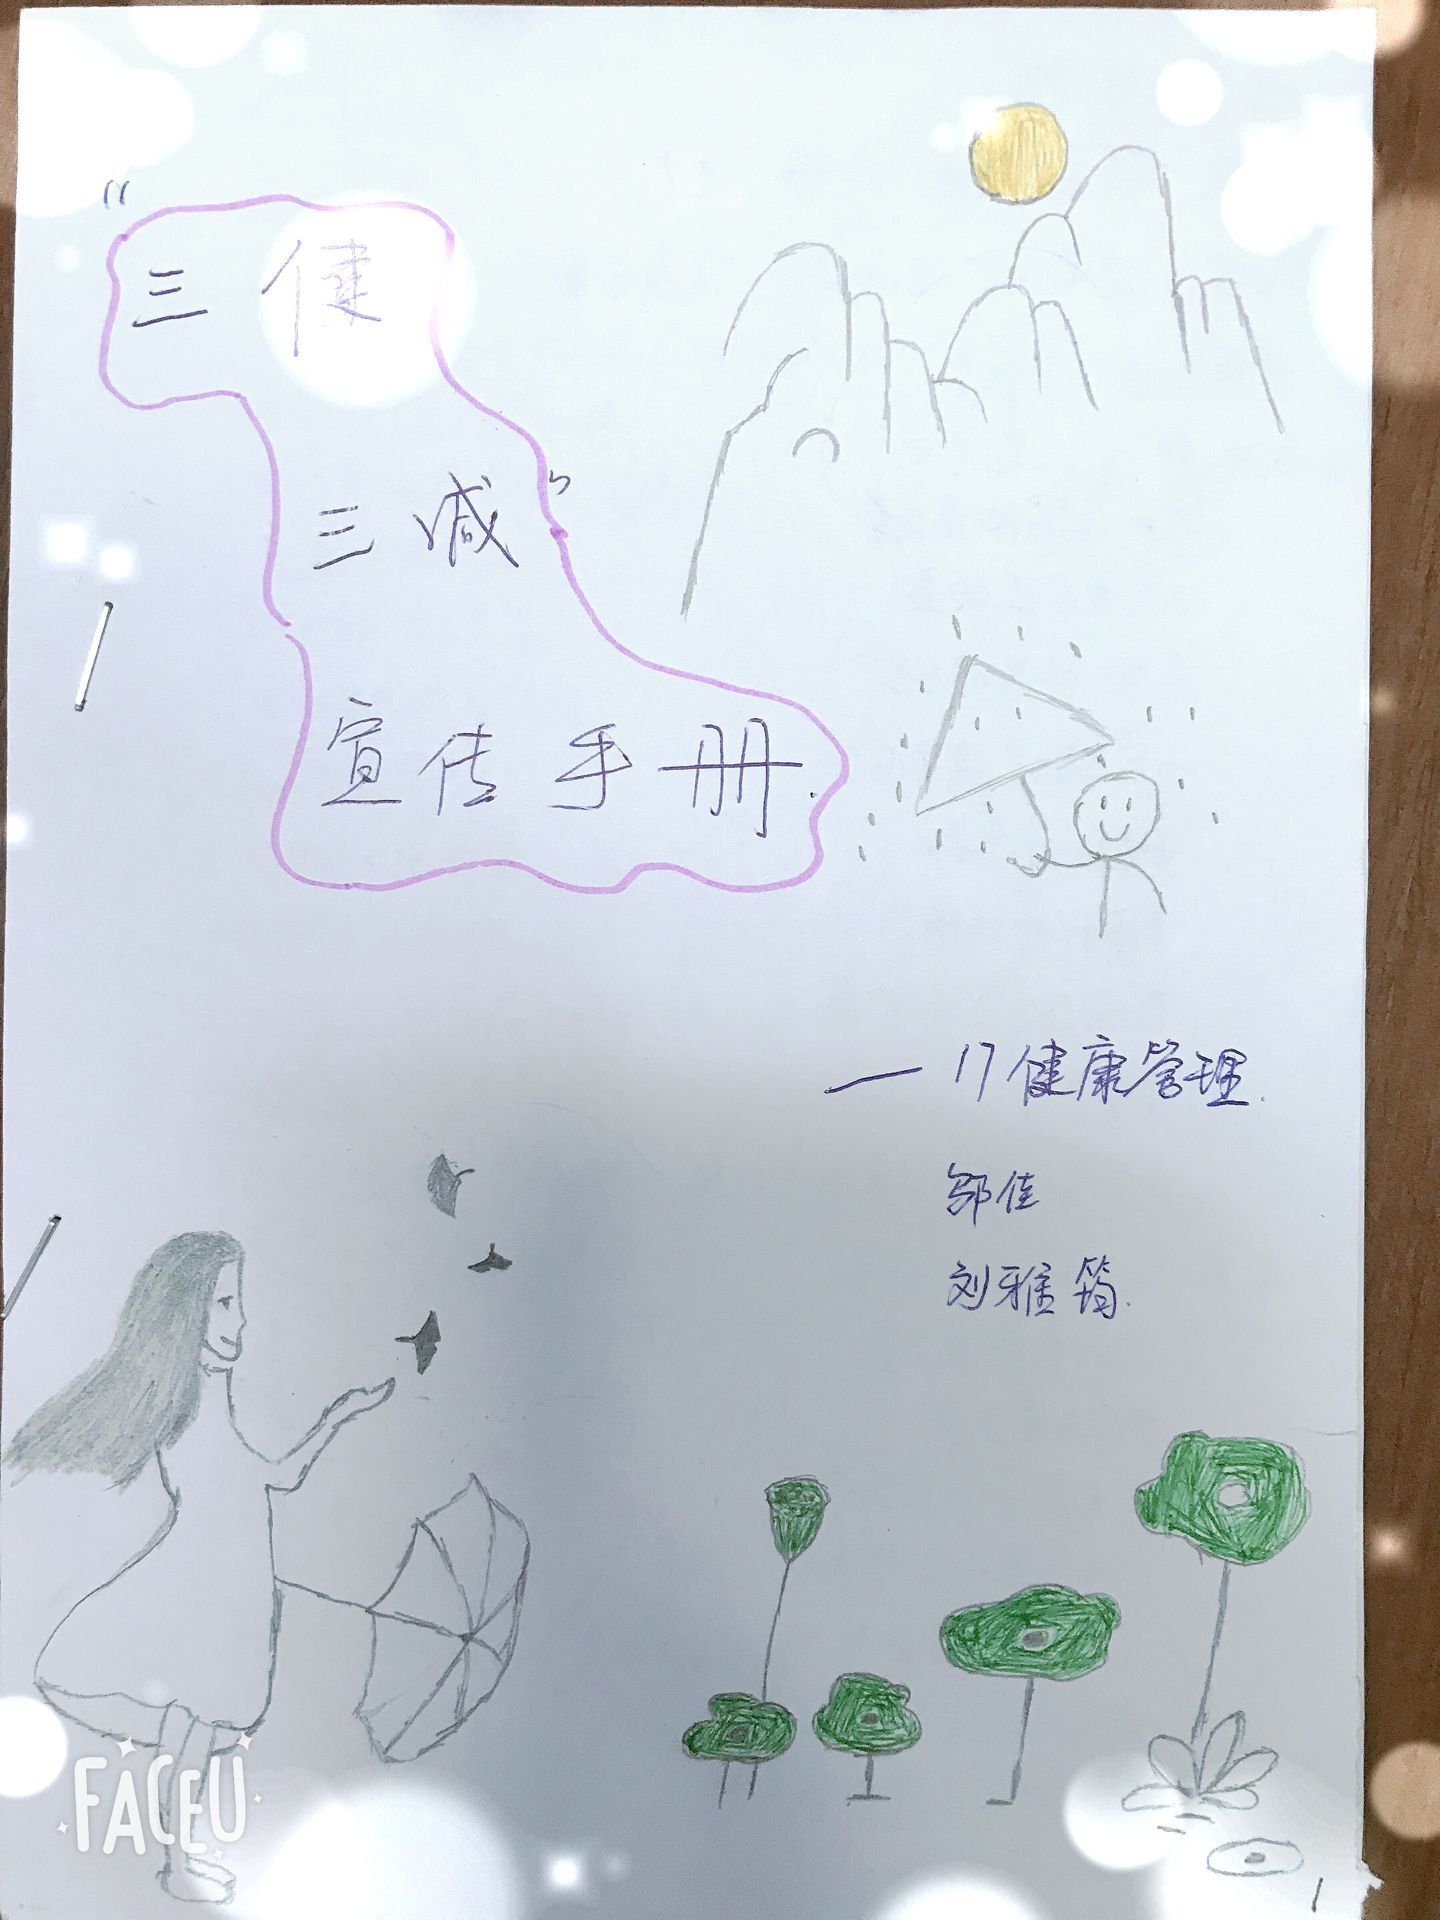 “三健
三减”
宣传手册.
— 17健康管理.
邹佳
刘雅筠.
FACEU
1